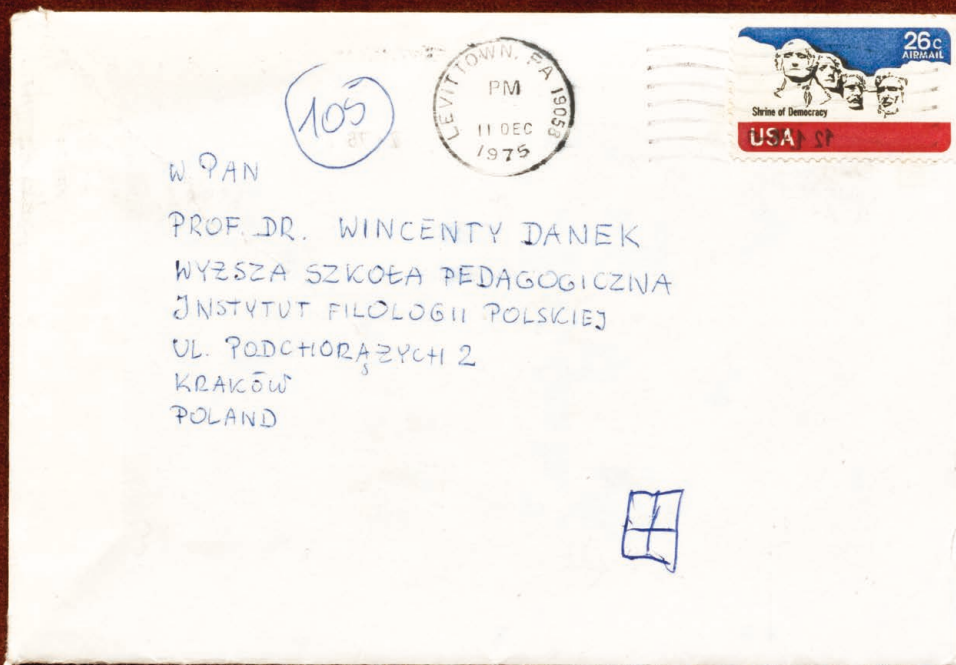 105
LEVITTOWN, PA 19058
PM
11 DEC
1975
26c
AIRMAIL
Shrine of Democracy
USA
W PAN
PROF. DR. WINCENTY DANEK
WYŻSZA SZKOŁA PEDAGOGICZNA
INSTYTUT FILOLOGII POLSKIEJ
UL. PODCHORĄŻYCH 2
KRAKÓW
POLAND